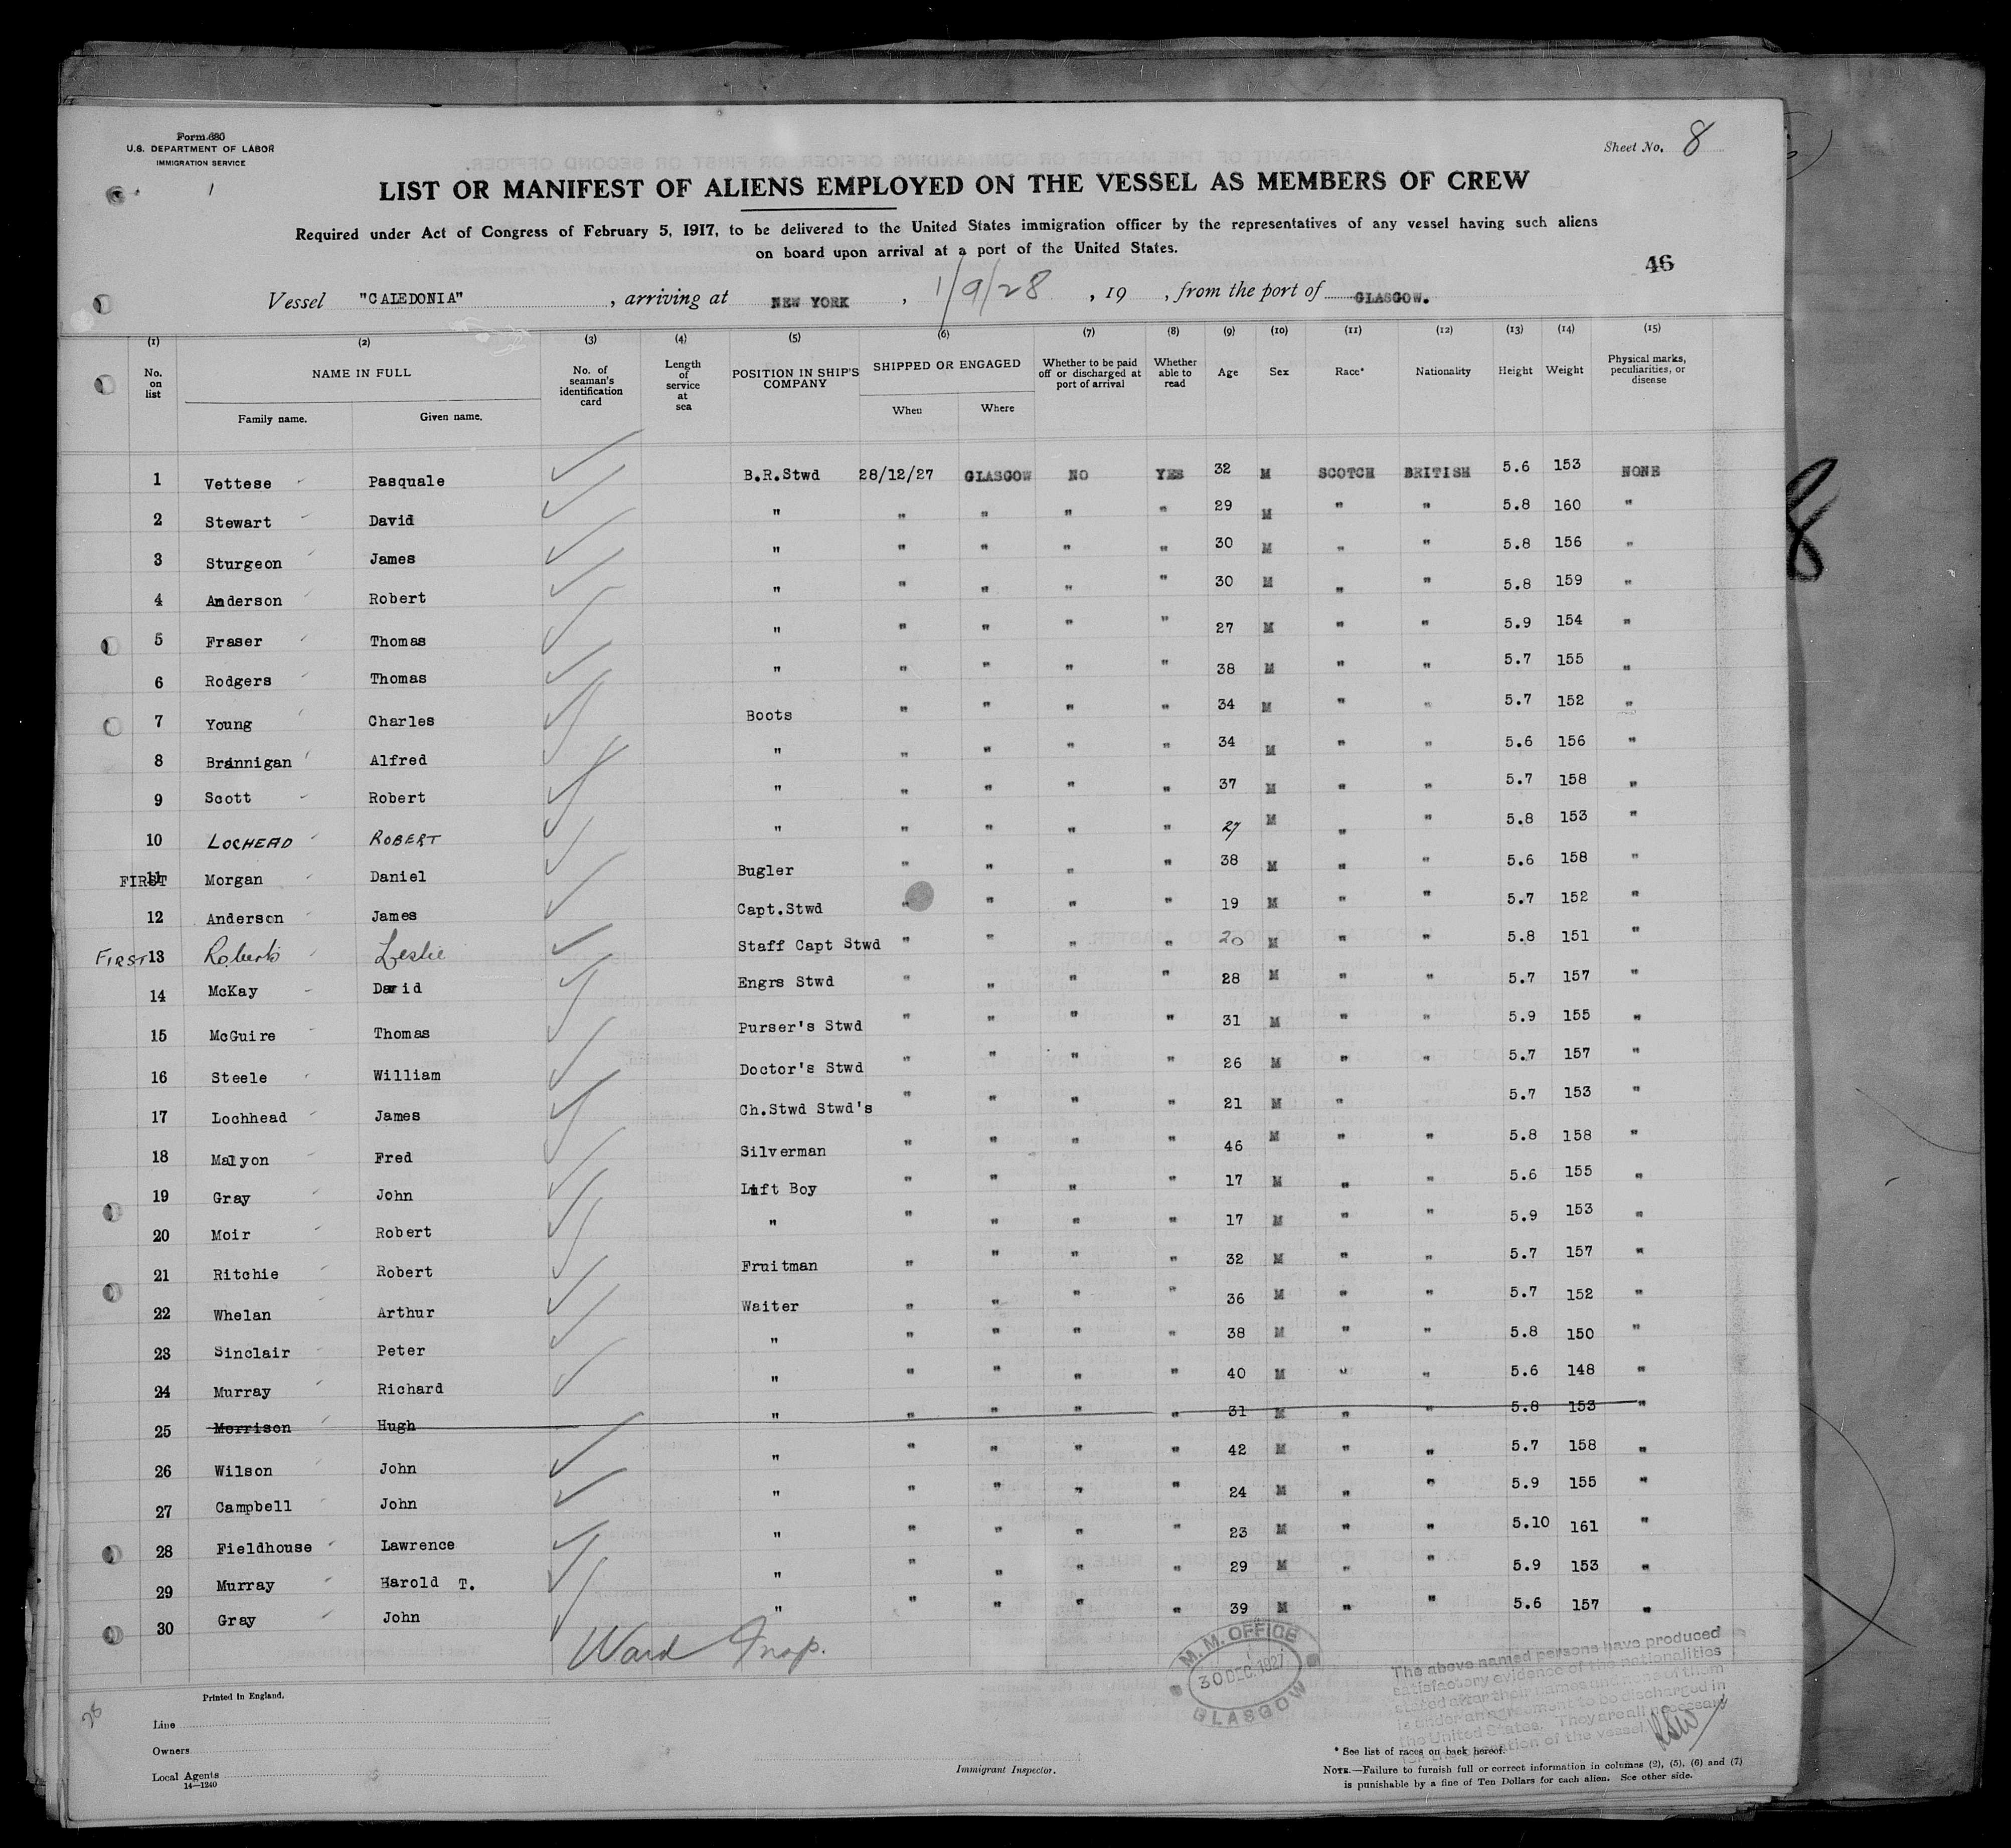 Form 680
U.S. DEPARTMENT OF LABOR
IMMIGRATION SERVICE
Sheet No. 8
LIST OR MANIFEST OF ALIENS EMPLOYED ON THE VESSEL AS MEMBERS OF CREW
Required under Act of Congress of February 5, 1917, to be delivered to the United States immigration officer by the representatives of any vessel having such aliens
on board upon arrival at a port of the United States.
46
Vessel "CALEDONIA", arriving at NEW YORK, 1/9/28, 19 , from the port of GLASGOW.
(1) (2) (3) (4) (5) (6) (7) (8) (9) (10) (11) (12) (13) (14) (15)
No. on list NAME IN FULL No. of seaman's identification card Length of service at sea POSITION IN SHIP'S COMPANY SHIPPED OR ENGAGED Whether to be paid off or discharged at port of arrival Whether able to read Age Sex Race* Nationality Height Weight Physical marks, peculiarities, or disease
Family name. Given name. When Where
1 Vettese Pasquale B.R.Stwd 28/12/27 GLASGOW NO YES 32 M SCOTCH BRITISH 5.6 153 NONE
2 Stewart David " " " " " 29 M " " 5.8 160 "
3 Sturgeon James " " " " " 30 M " " 5.8 156 "
4 Anderson Robert " " " " " 30 M " " 5.8 159 "
5 Fraser Thomas " " " " " 27 M " " 5.9 154 "
6 Rodgers Thomas " " " " " 38 M " " 5.7 155 "
7 Young Charles Boots " " " " 34 M " " 5.7 152 "
8 Brannigan Alfred " " " " " 34 M " " 5.6 156 "
9 Scott Robert " " " " " 37 M " " 5.7 158 "
10 LOCHEAD ROBERT " " " " " 27 M " " 5.8 153 "
FIRST 11 Morgan Daniel Bugler " " " " 38 M " " 5.6 158 "
12 Anderson James Capt.Stwd " " " " 19 M " " 5.7 152 "
FIRST 13 Roberts Leslie Staff Capt Stwd " " " " 20 M " " 5.8 151 "
14 McKay David Engrs Stwd " " " " 28 M " " 5.7 157 "
15 McGuire Thomas Purser's Stwd " " " " 31 M " " 5.9 155 "
16 Steele William Doctor's Stwd " " " " 26 M " " 5.7 157 "
17 Lochhead James Ch.Stwd Stwd's " " " " 21 M " " 5.7 153 "
18 Malyon Fred Silverman " " " " 46 M " " 5.8 158 "
19 Gray John Lift Boy " " " " 17 M " " 5.6 155 "
20 Moir Robert " " " " " 17 M " " 5.9 153 "
21 Ritchie Robert Fruitman " " " " 32 M " " 5.7 157 "
22 Whelan Arthur Waiter " " " " 36 M " " 5.7 152 "
23 Sinclair Peter " " " " " 38 M " " 5.8 150 "
24 Murray Richard " " " " " 40 M " " 5.6 148 "
25 Morrison Hugh " " " " " 31 M " " 5.8 153 "
26 Wilson John " " " " " 42 M " " 5.7 158 "
27 Campbell John " " " " " 24 M " " 5.9 155 "
28 Fieldhouse Lawrence " " " " " 23 M " " 5.10 161 "
29 Murray Harold T. " " " " " 29 M " " 5.9 153 "
30 Gray John " " " " " 39 M " " 5.6 157 "
Ward Insp.
M.M. OFFICE
30 DEC. 1927
GLASGOW
The above named persons have produced
satisfactory evidence of the nationalities
stated after their names and none of them
is under an agreement to be discharged in
the United States. They are all necessary
for the operation of the vessel
Printed in England.
Line
Owners
Local Agents
14—1240
Immigrant Inspector.
* See list of races on back hereof.
NOTE.—Failure to furnish full or correct information in columns (2), (5), (6) and (7)
is punishable by a fine of Ten Dollars for each alien. See other side.
8